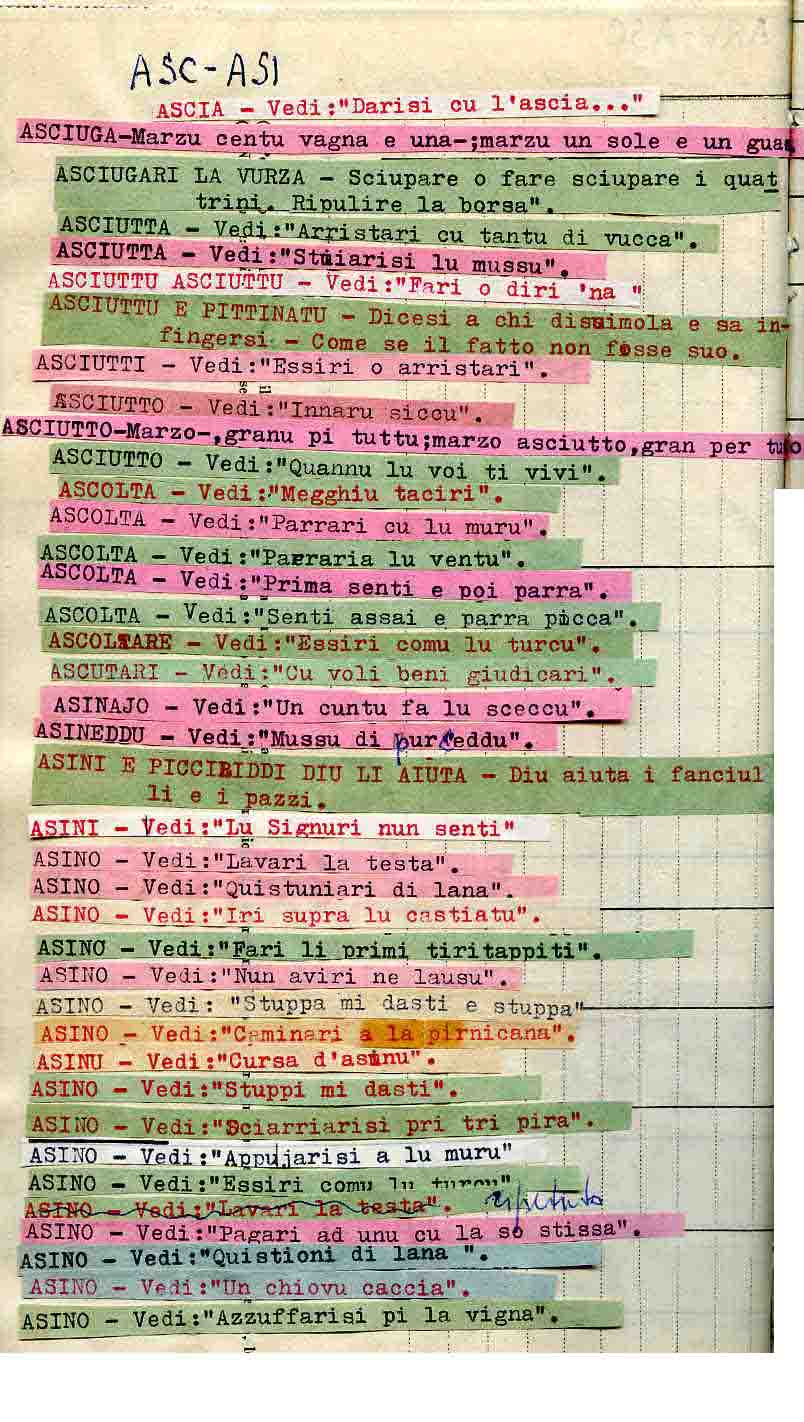 ASC-ASI
ASCIA - Vedi:"Darisi cu l'ascia..."
ASCIUGA-Marzu centu vagna e una-;marzu un sole e un gua
ASCIUGARI LA VURZA - Sciupare o fare sciupare i quat
trini. Ripulire la borsa".
ASCIUTTA - Vedi:"Arristari cu tantu di vucca".
ASCIUTTA - Vedi:"Stuiarisi lu mussu".
ASCIUTTU ASCIUTTU - Vedi:"Fari o diri 'na "
ASCIUTTU E PITTINATU - Dicesi a chi dissimola e sa in-
fingersi - Come se il fatto non fosse suo.
ASCIUTTI - Vedi:"Essiri o arristari".
ASCIUTTO - Vedi:"Innaru siccu".
ASCIUTTO-Marzo-,granu pi tuttu;marzo asciutto,gran per tutto
ASCIUTTO - Vedi:"Quannu lu voi ti vivi".
ASCOLTA - Vedi:"Megghiu taciri".
ASCOLTA - Vedi:"Parrari cu lu muru".
ASCOLTA - Vedi:"Parraria lu ventu".
ASCOLTA - Vedi:"Prima senti e poi parra".
ASCOLTA - Vedi:"Senti assai e parra picca".
ASCOLTARE - Vedi:"Essiri comu lu turcu".
ASCUTARI - Vedi:"Cu voli beni giudicari".
ASINAJO - Vedi:"Un cuntu fa lu sceccu".
ASINEDDU - Vedi:"Mussu di purceddu".
ASINI E PICCIRIDDI DIU LI AIUTA - Diu aiuta i fanciul
li e i pazzi.
ASINI - Vedi:"Lu Signuri nun senti"
ASINO - Vedi:"Lavari la testa".
ASINO - Vedi:"Quistuniari di lana".
ASINO - Vedi:"Iri supra lu castiatu".
ASINO - Vedi:"Fari li primi tiritappiti".
ASINO - Vedi:"Nun aviri ne lausu".
ASINO - Vedi: "Stuppa mi dasti e stuppa"
ASINO - Vedi:"Caminari a la pirnicana".
ASINU - Vedi:"Cursa d'asinu".
ASINO - Vedi:"Stuppi mi dasti".
ASINO - Vedi:"Sciarriarisi pri tri pira".
ASINO - Vedi:"Appujarisi a lu muru"
ASINO - Vedi:"Essiri comu lu turcu"
ASINO - Vedi:"Lavari la testa". ripetuto
ASINO - Vedi:"Pagari ad unu cu la so stissa".
ASINO - Vedi:"Quistioni di lana ".
ASINO - Vedi:"Un chiovu caccia".
ASINO - Vedi:"Azzuffarisi pi la vigna".